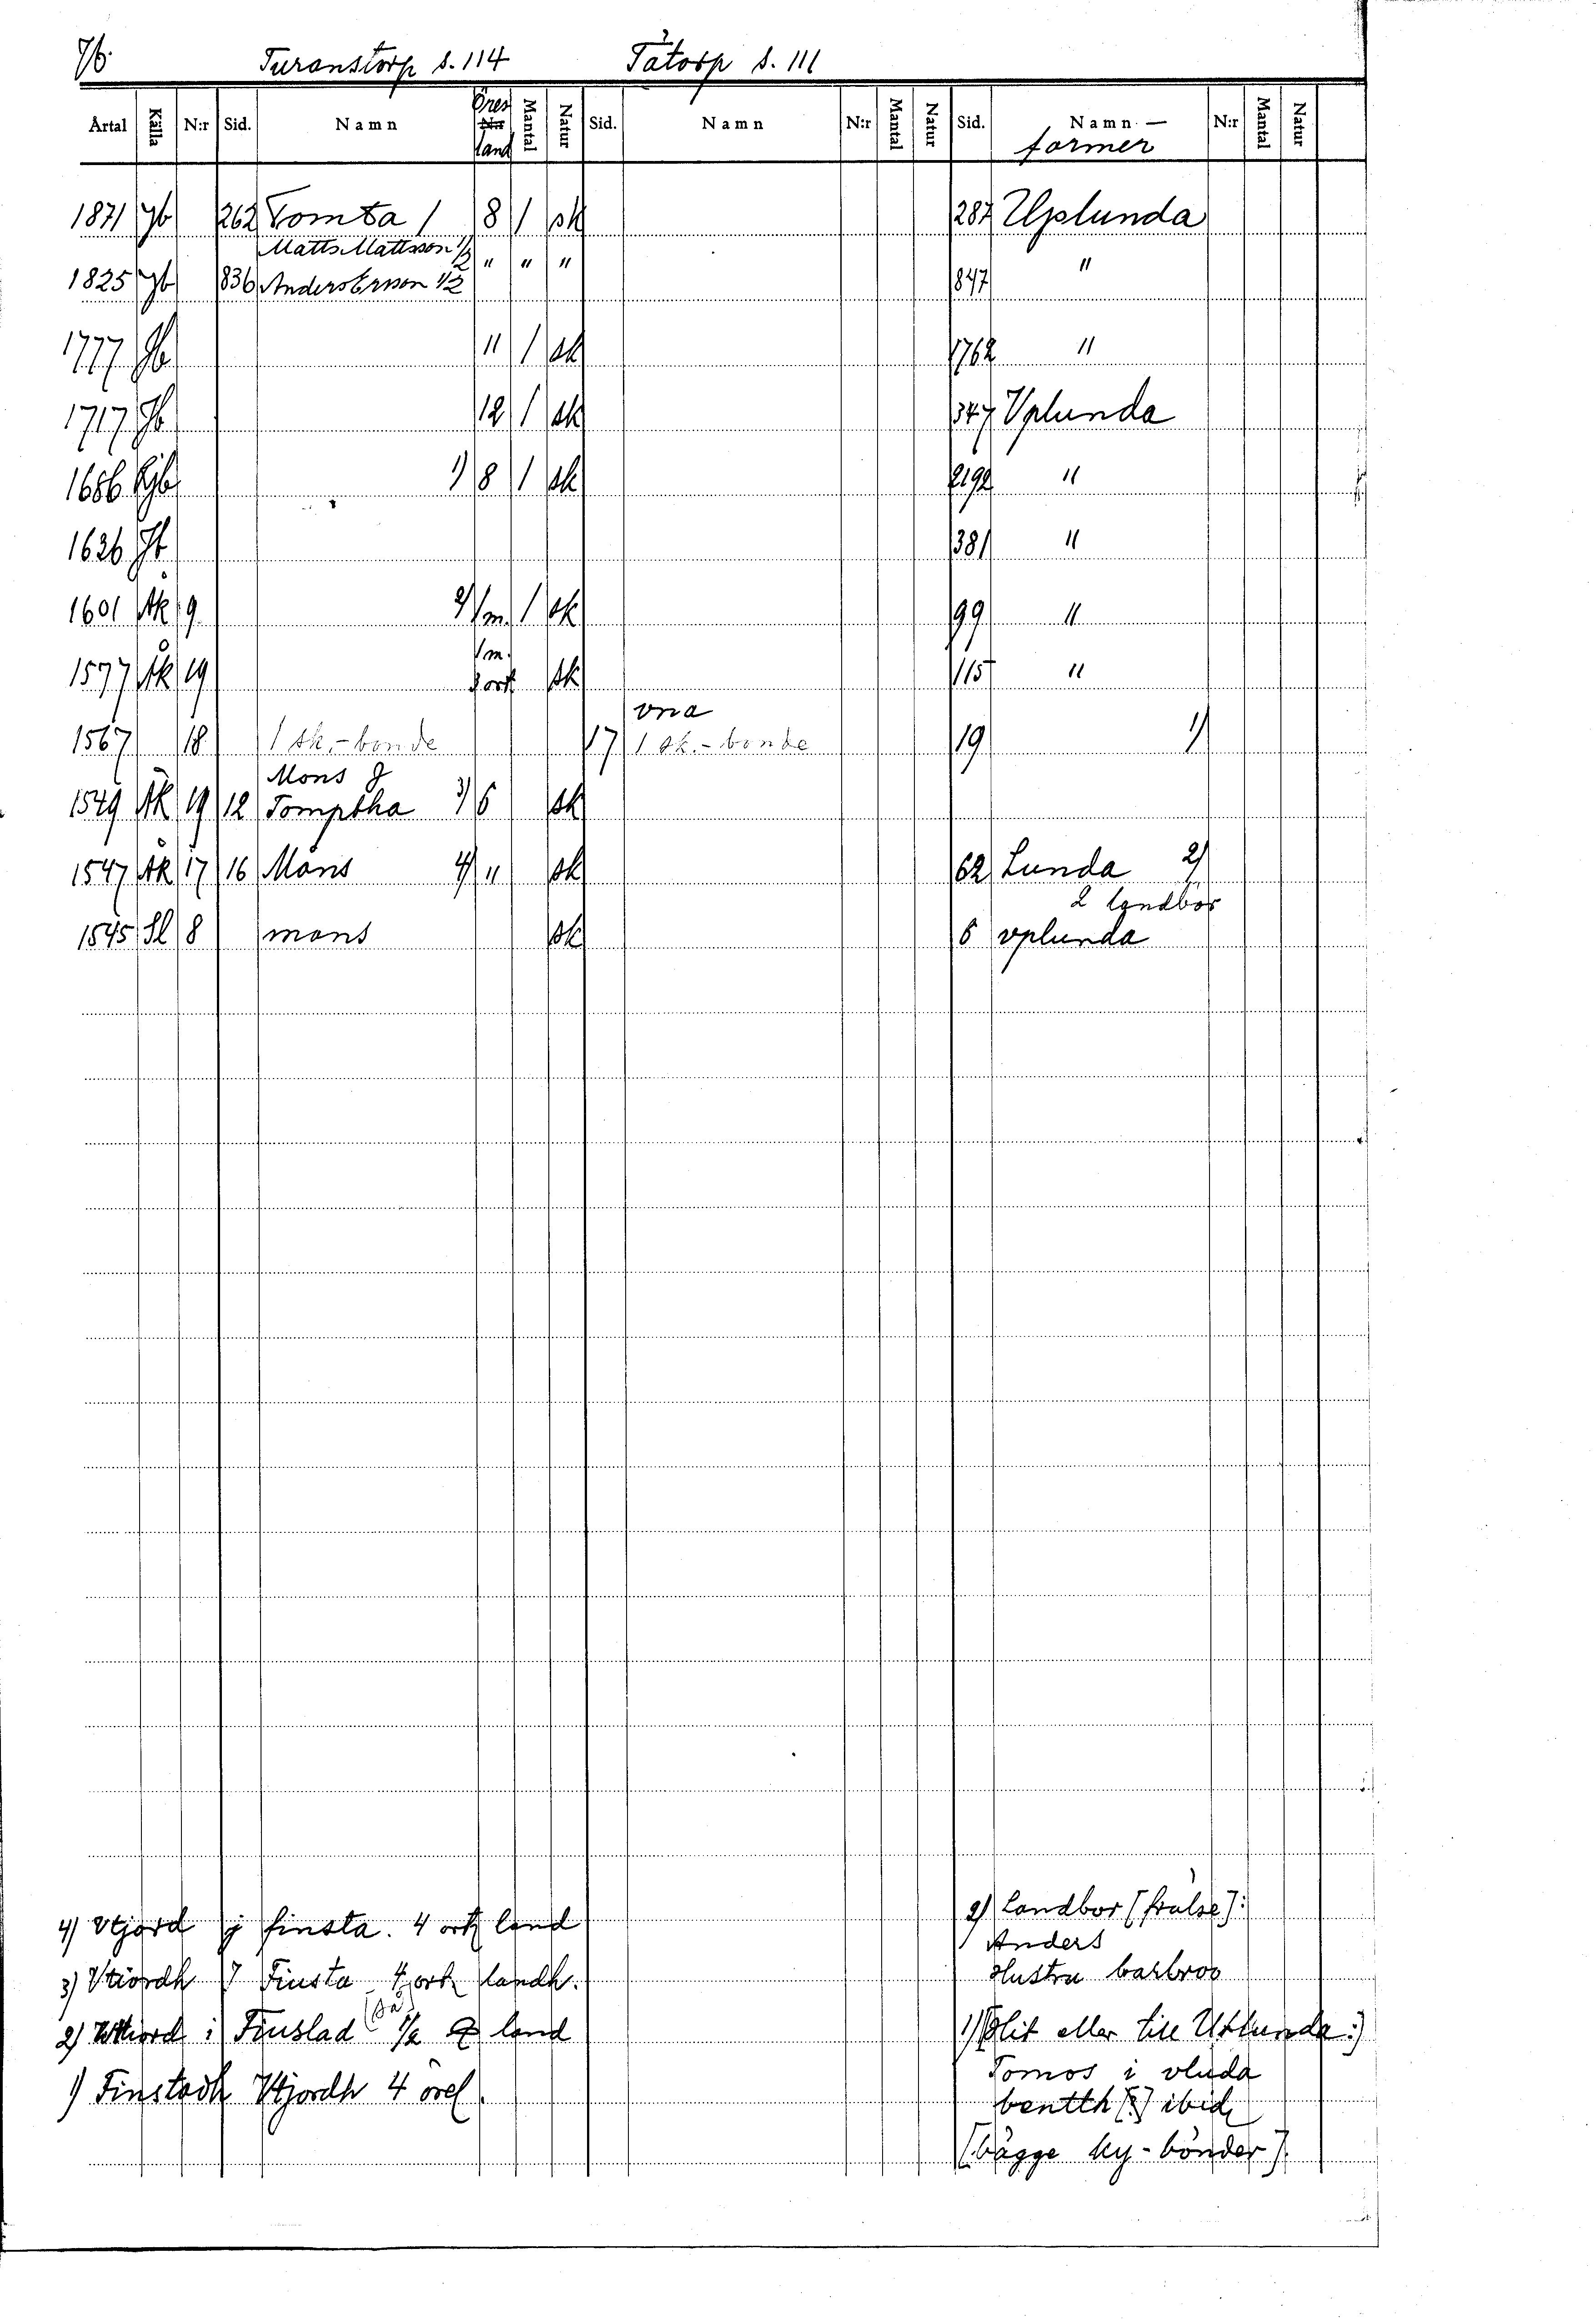 76. Turanstorp s. 114 Tåtorp s. 111
Årtal Källa N:r Sid. Namn Öres land Mantal Natur Sid. Namn N:r Mantal Natur Sid. Namn- former N:r Mantal Natur
1871 Jb 262 Tomta 1 8 1 sk 287 Uplunda
Matts Mattsson 1/2 " " "
1825 Jb 836 Anders Ersson 1/2 847 "
1777 Jb 11 1 sk 1762 "
1717 Jb 12 1 sk 347 Vplunda
1686 Kjb 1) 8 1 sk 2192 "
1626 Jb 381 "
1601 Åk 9 2) 1 m. 1 sk 99 "
1 m.
1577 Åk 19 sk 115 "
vna
1567 18 1 sk.-bonde 17 1 sk.-bonde 19 1)
Mons J
1549 Åk 19 12 Tomptha 3) 6 sk
1547 Åk 17 16 Måns 4) " sk 62 Lunda 2)
2 landbor
1545 Sl 8 mans sk 6 vplunda
4) Vtjord j finsta. 4 land
3) Vtiordh J Finsta 4 landh.
2) i 1/2 land
1) Finstadh Vtjordh 4 öres
2) Landbor [frälse]:
Anders
Hustru barbroo
1) eller till Uplunda:)
Tomos i vluda
bentth [?] ibid
[bägge ky-bönder]